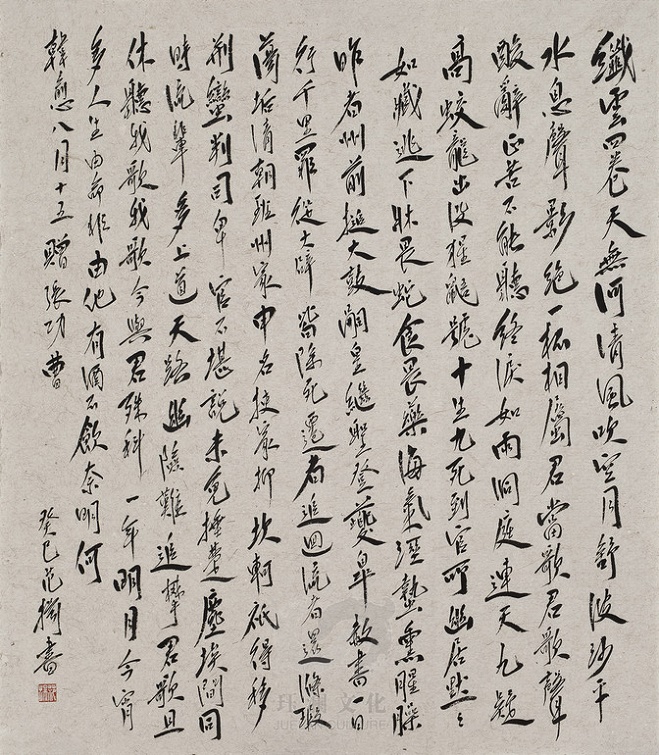 纖雲四卷天無河清風吹空月舒波沙平
水息聲影絕一杯相屬君當歌君歌聲
酸辭正苦不能聽終淚如雨洞庭連天九疑
高蛟龍出沒猩鼯號十生九死到官所幽居默々
如藏逃下牀畏蛇食畏藥海氣溼蟄熏腥臊
昨者州前搥大鼓嗣皇繼聖登夔皋赦書一日
行千里罪從大辟皆除死遷者追迴流者還滌瑕
蕩垢清朝班州家申名使家抑坎軻祇得移
荊蠻判司卑官不堪說未免捶楚塵埃間同
時流輩多上道天路幽險難追攀君歌且
休聽我歌我歌今與君殊科一年明月今宵
多人生由命非由他有酒不飲奈明何
韓愈八月十五贈張功曹
癸巳范書
文化